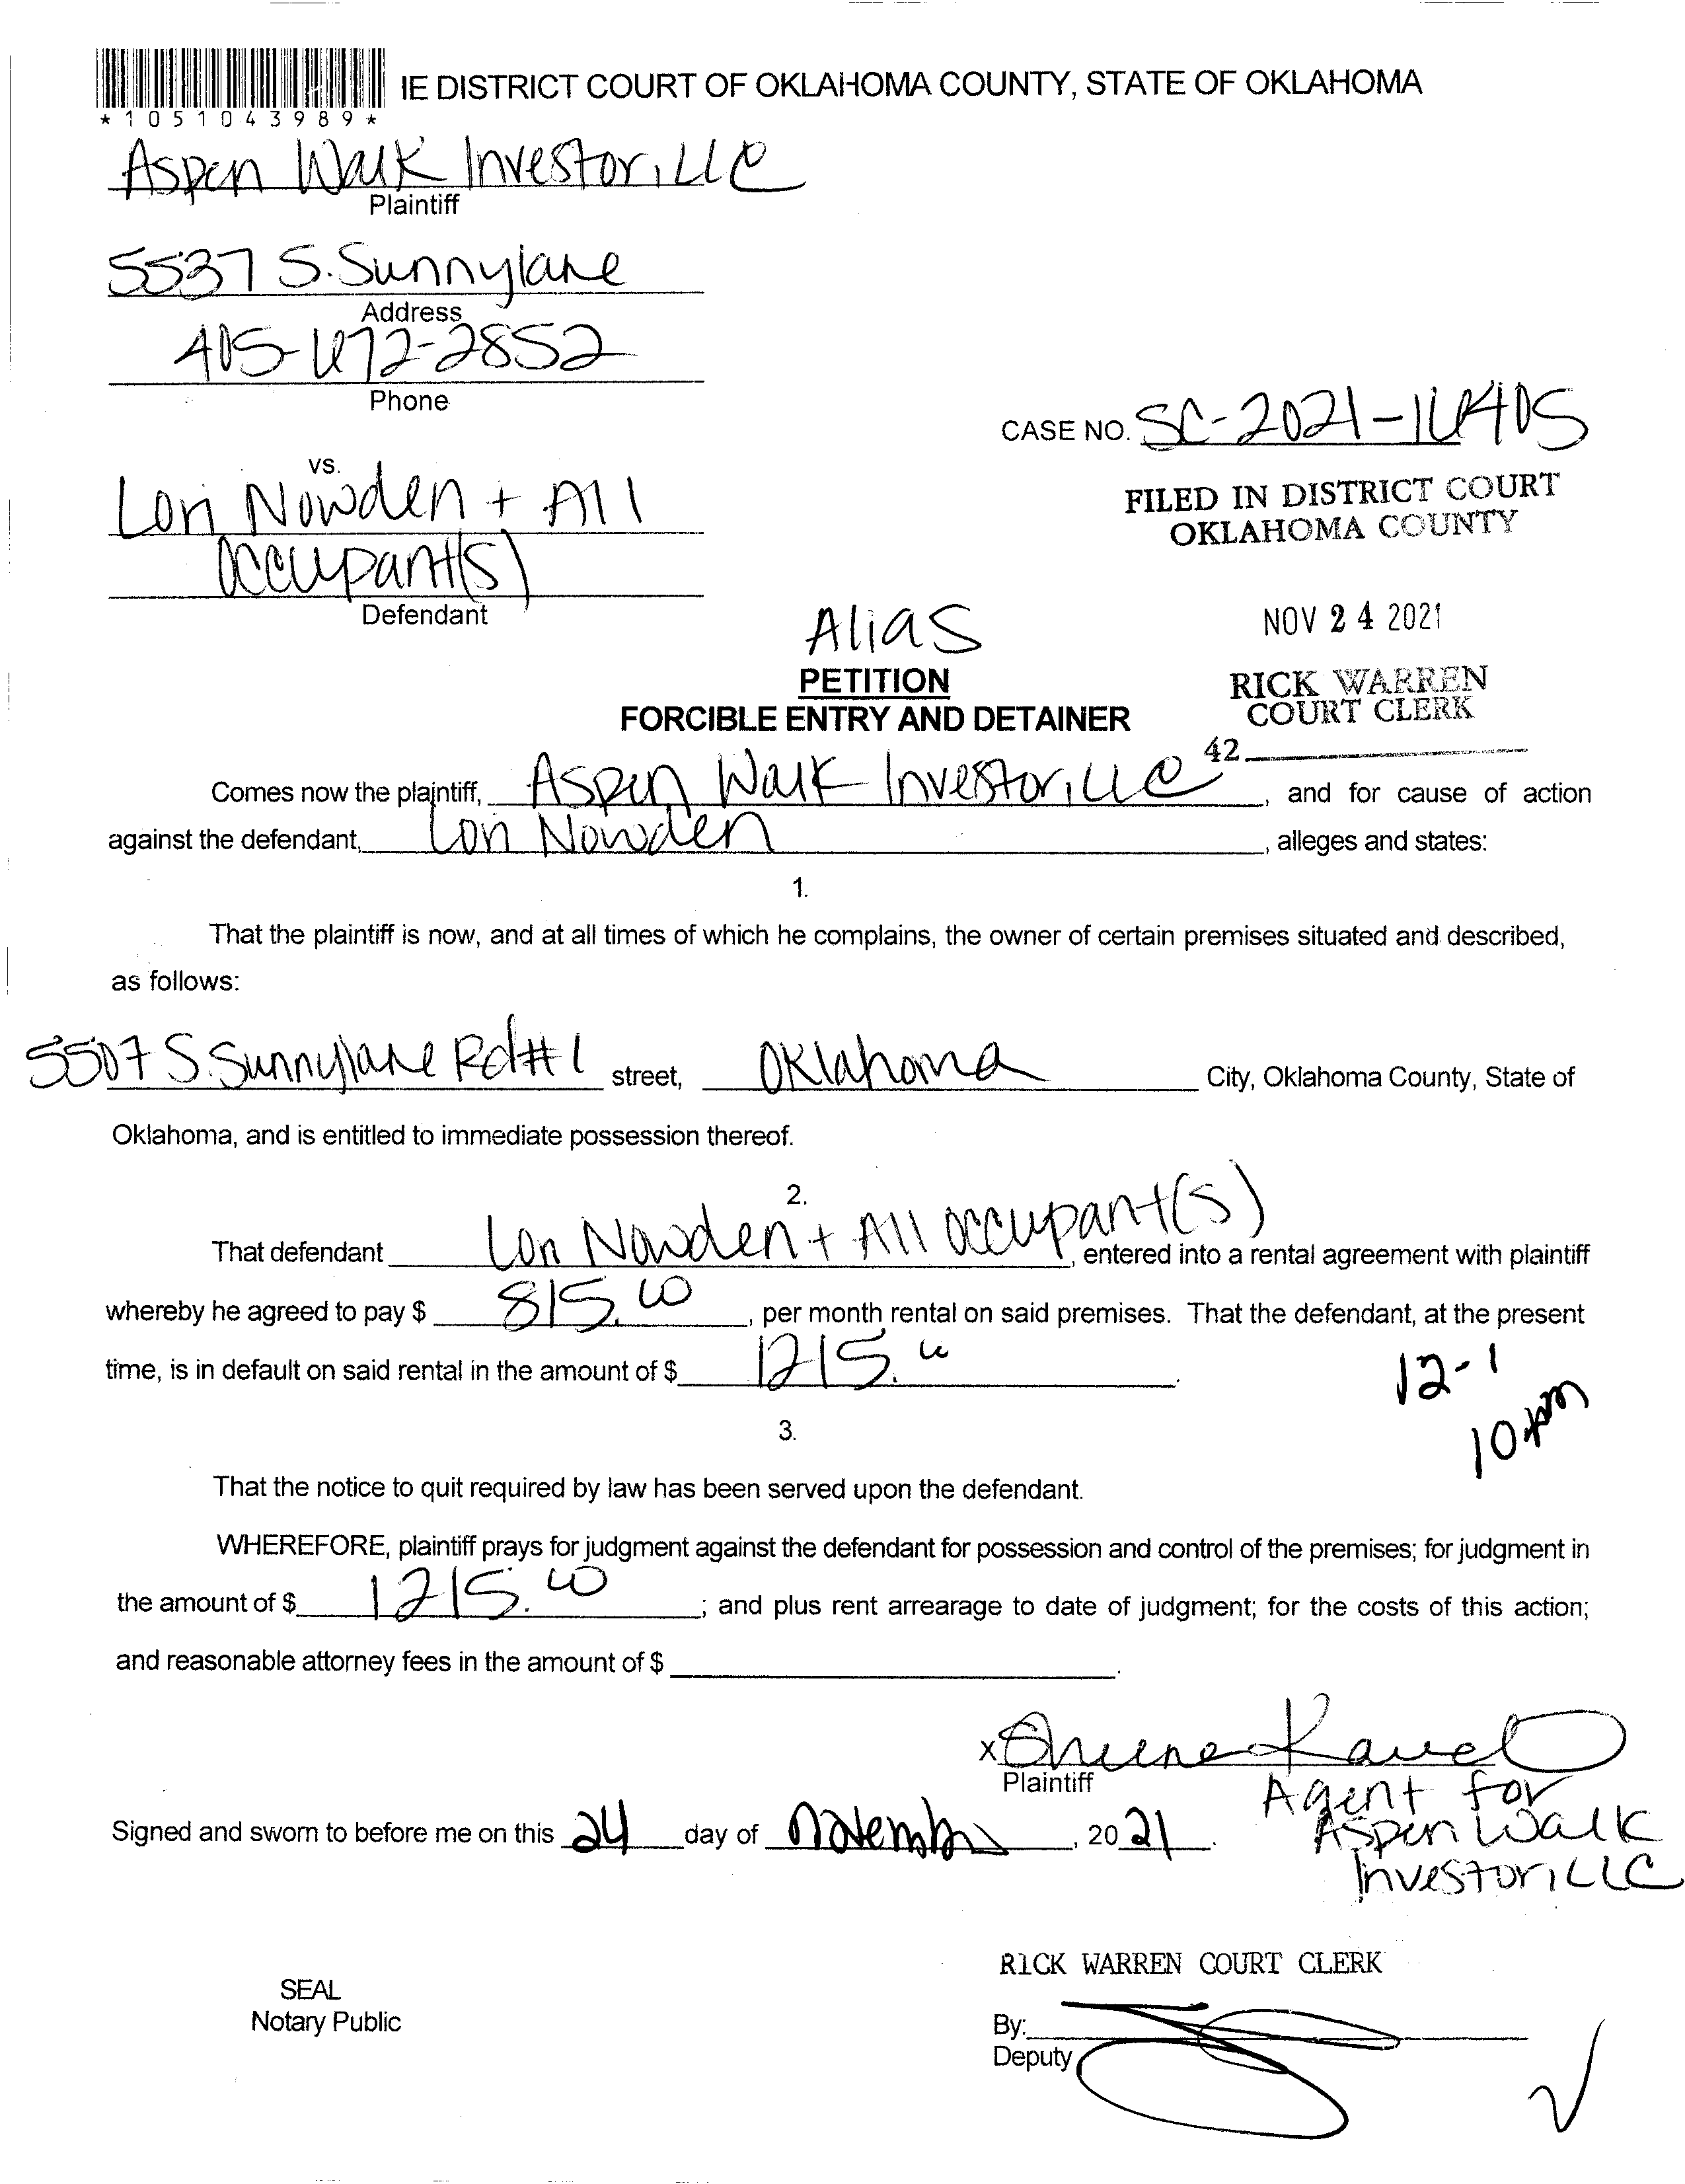 IE DISTRICT COURT OF OKLAHOMA COUNTY, STATE OF OKLAHOMA
*1051043989*
Aspen Walk Investor, LLC
Plaintiff
5537 S. Sunnylane
Address
405-672-2852
Phone
CASE NO. SC-2021-16405
vs.
Lori Nowden + All
occupant(s)
Defendant
FILED IN DISTRICT COURT
OKLAHOMA COUNTY
NOV 24 2021
RICK WARREN
COURT CLERK
42
Alias
PETITION
FORCIBLE ENTRY AND DETAINER
Comes now the plaintiff, Aspen Walk Investor, LLC, and for cause of action
against the defendant, Lori Nowden, alleges and states:
1.
That the plaintiff is now, and at all times of which he complains, the owner of certain premises situated and described,
as follows:
5507 S. Sunnylane Rd #1 street, Oklahoma City, Oklahoma County, State of
Oklahoma, and is entitled to immediate possession thereof.
2.
That defendant Lori Nowden + All occupant(s), entered into a rental agreement with plaintiff
whereby he agreed to pay $ 815.00, per month rental on said premises. That the defendant, at the present
time, is in default on said rental in the amount of $ 1215.00.
12-1
3.
That the notice to quit required by law has been served upon the defendant.
WHEREFORE, plaintiff prays for judgment against the defendant for possession and control of the premises; for judgment in
the amount of $ 1215.00; and plus rent arrearage to date of judgment; for the costs of this action;
and reasonable attorney fees in the amount of $ .
x
Plaintiff
Agent for
Aspen Walk
Investor, LLC
Signed and sworn to before me on this 24 day of November, 2021.
RICK WARREN COURT CLERK
SEAL
Notary Public
By:
Deputy